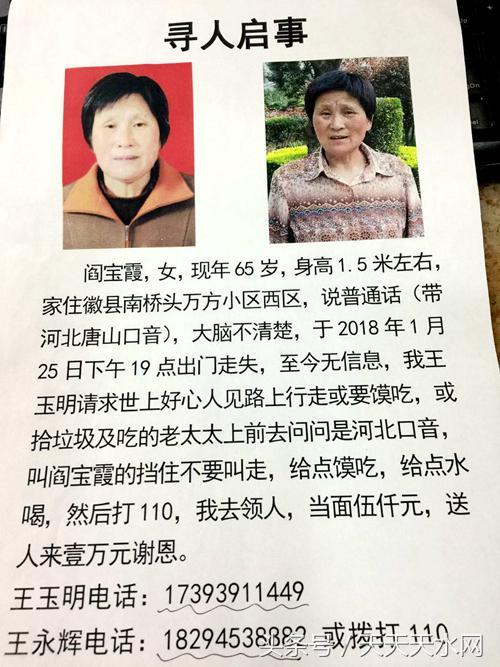 寻人启事
阎宝霞，女，现年65岁，身高1.5米左右，
家住徽县南桥头万方小区西区，说普通话（带
河北唐山口音），大脑不清楚，于2018年1月
25日下午19点出门走失，至今无信息，我王
玉明请求世上好心人见路上行走或要馍吃，或
拾垃圾及吃的老太太上前去问问是河北口音，
叫阎宝霞的挡住不要叫走，给点馍吃，给点水
喝，然后打110，我去领人，当面伍仟元，送
人来壹万元谢恩。
王玉明电话：17393911449
王永辉电话：18294538882 或拨打110
头条号／天天天水网